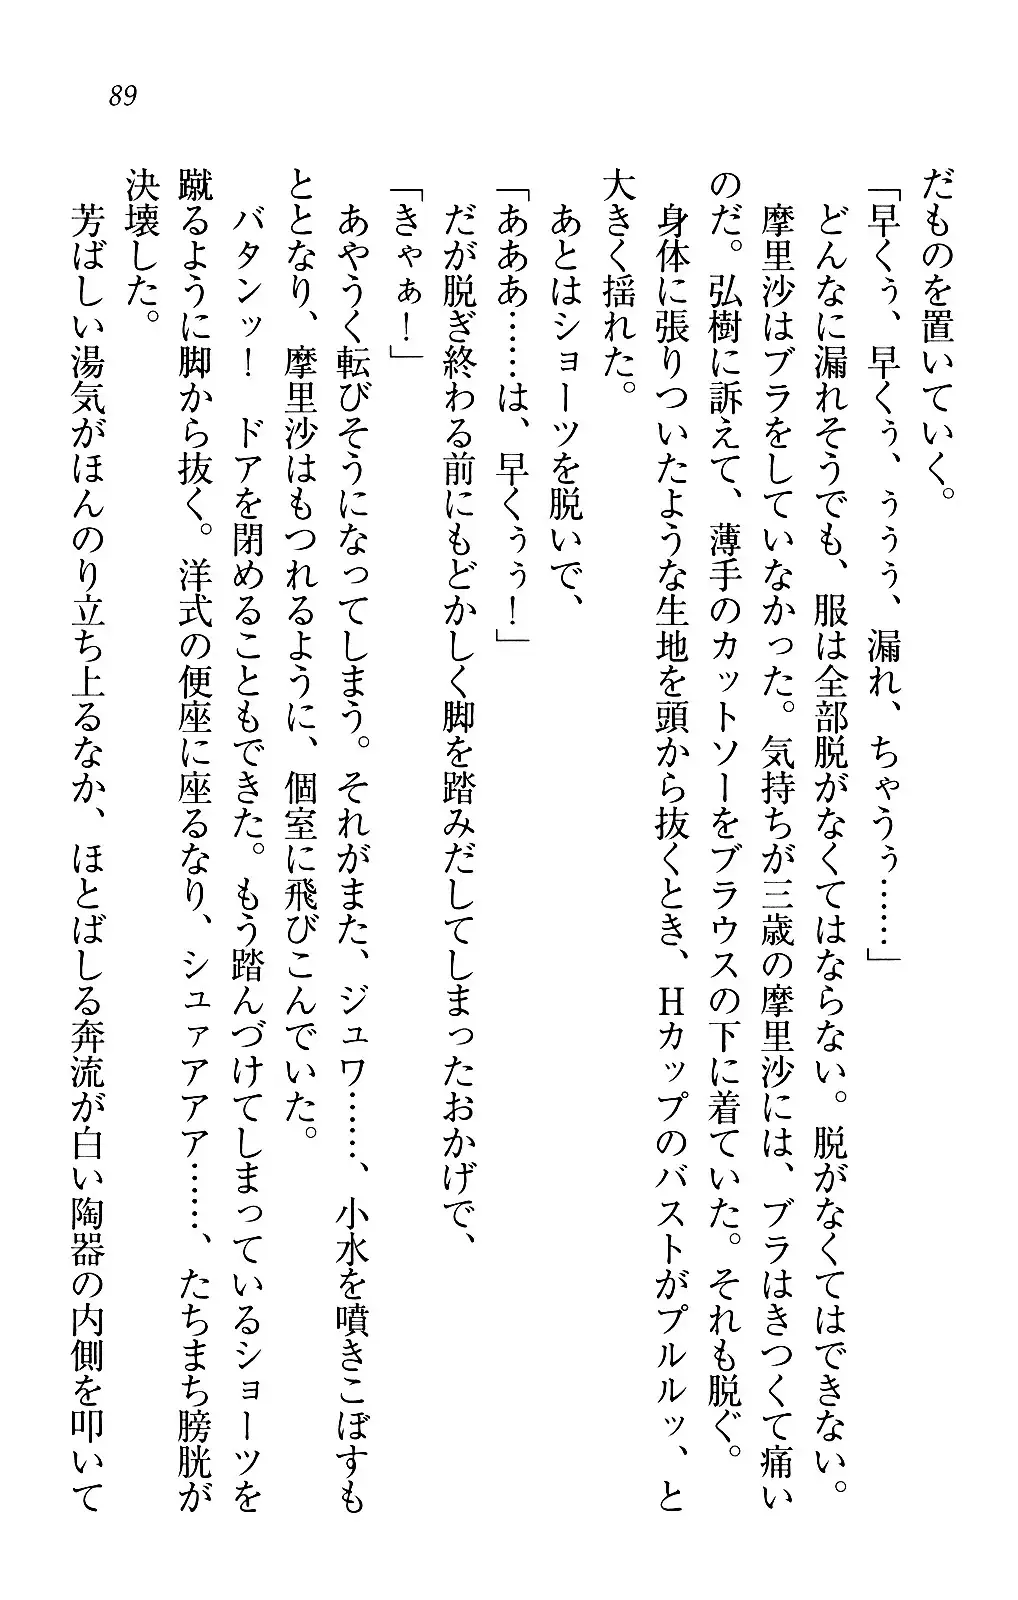 89
だものを置いていく。
「早くぅ、早くぅ、ぅぅぅ、漏れ、ちゃうぅ……」
どんなに漏れそうでも、服は全部脱がなくてはならない。脱がなくてはできない。
摩里沙はブラをしていなかった。気持ちが三歳の摩里沙には、ブラはきつくて痛い
のだ。弘樹に訴えて、薄手のカットソーをブラウスの下に着ていた。それも脱ぐ。
身体に張りついたような生地を頭から抜くとき、Hカップのバストがプルルッ、と
大きく揺れた。
あとはショーツを脱いで、
「あああ……は、早くぅぅ！」
だが脱ぎ終わる前にもどかしく脚を踏みだしてしまったおかげで、
「きゃぁ！」
あやうく転びそうになってしまう。それがまた、ジュワ……、小水を噴きこぼすも
ととなり、摩里沙はもつれるように、個室に飛びこんでいた。
バタンッ！　ドアを閉めることもできた。もう踏んづけてしまっているショーツを
蹴るように脚から抜く。洋式の便座に座るなり、シュァアアア……、たちまち膀胱が
決壊した。
芳ばしい湯気がほんのり立ち上るなか、ほとばしる奔流が白い陶器の内側を叩いて